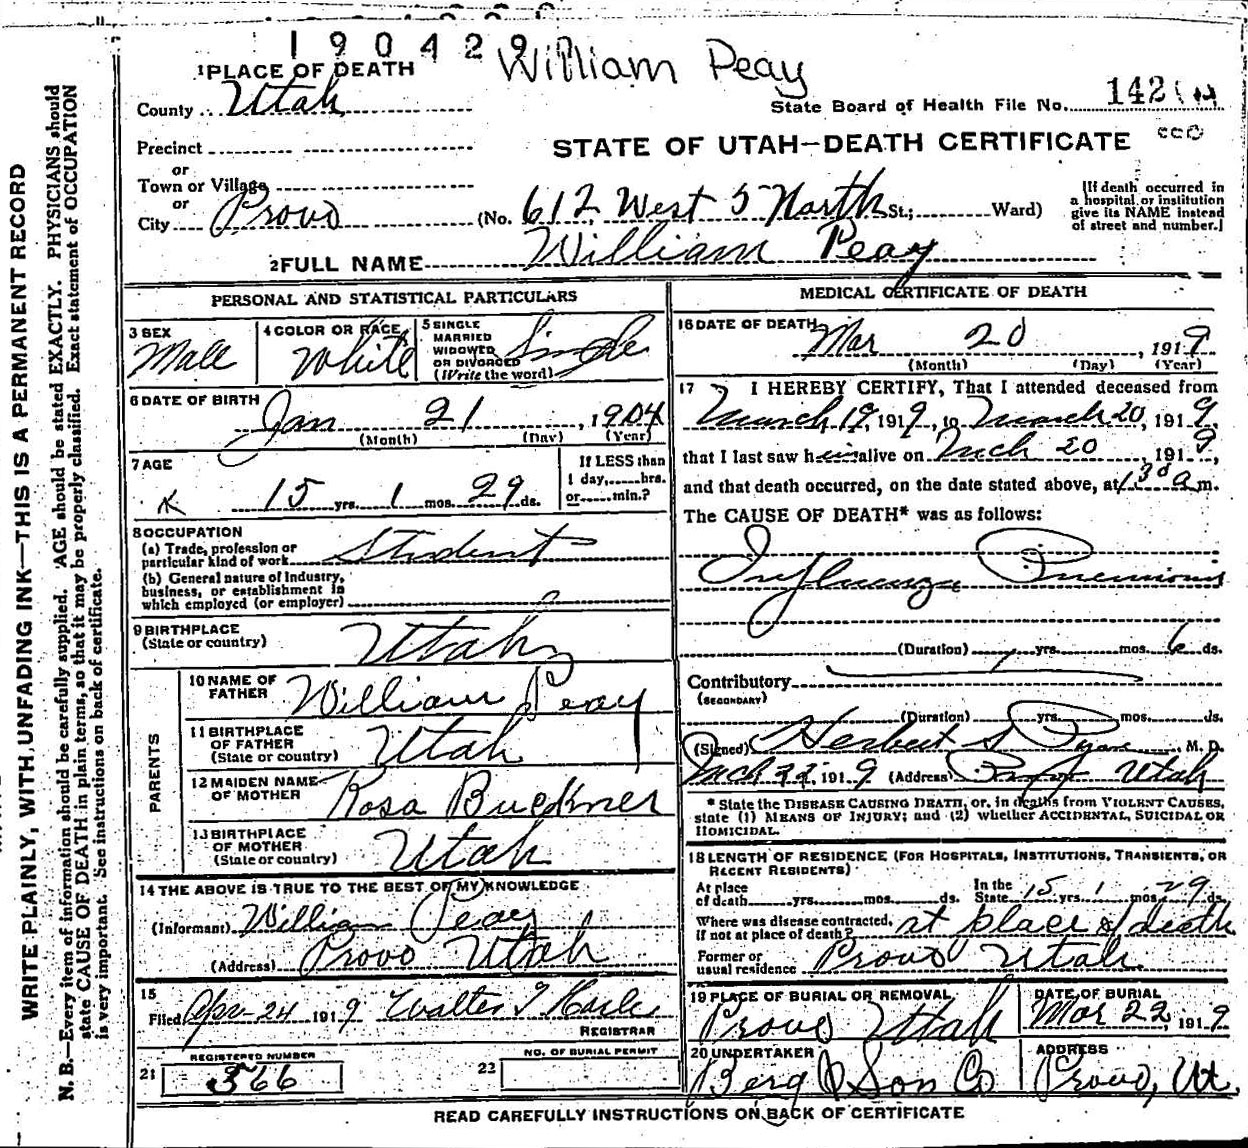 190429 William Peay
1 PLACE OF DEATH
County Utah
State Board of Health File No. 142
STATE OF UTAH—DEATH CERTIFICATE
Precinct
or
Town or Village
or
City Provo (No. 612 West 5 North St.; Ward)
[If death occurred in
a hospital or institution
give its NAME instead
of street and number.]
2 FULL NAME William Peay
PERSONAL AND STATISTICAL PARTICULARS
3 SEX Male
4 COLOR OR RACE White
5 SINGLE
MARRIED
WIDOWED
OR DIVORCED
(Write the word) Single
6 DATE OF BIRTH
Jan 21, 1904
(Month) (Day) (Year)
7 AGE
15 yrs. 1 mos. 29 ds.
If LESS than
1 day, hrs.
or min.?
8 OCCUPATION
(a) Trade, profession or
particular kind of work Student
(b) General nature of Industry,
business, or establishment in
which employed (or employer)
9 BIRTHPLACE
(State or country) Utah
PARENTS
10 NAME OF
FATHER William Peay
11 BIRTHPLACE
OF FATHER
(State or country) Utah
12 MAIDEN NAME
OF MOTHER Rosa Buckner
13 BIRTHPLACE
OF MOTHER
(State or country) Utah
14 THE ABOVE IS TRUE TO THE BEST OF MY KNOWLEDGE
(Informant) William Peay
(Address) Provo Utah
15
Filed Apr 24 1919 Walter T
REGISTRAR
21 REGISTERED NUMBER
366
22 NO. OF BURIAL PERMIT
MEDICAL CERTIFICATE OF DEATH
16 DATE OF DEATH
Mar 20, 1919
(Month) (Day) (Year)
17 I HEREBY CERTIFY, That I attended deceased from
March 19, 1919, to March 20, 1919,
that I last saw him alive on Mch 20, 1919,
and that death occurred, on the date stated above, at 1 30 a m.
The CAUSE OF DEATH* was as follows:
Influenza Pneumonia
(Duration) yrs. mos. 6 ds.
Contributory
(SECONDARY)
(Duration) yrs. mos. ds.
(Signed) Herbert S Pyne, M. D.
Mch 22, 1919 (Address) Utah
* State the DISEASE CAUSING DEATH, or, in deaths from VIOLENT CAUSES,
state (1) MEANS OF INJURY; and (2) whether ACCIDENTAL, SUICIDAL OR
HOMICIDAL.
18 LENGTH OF RESIDENCE (FOR HOSPITALS, INSTITUTIONS, TRANSIENTS, OR
RECENT RESIDENTS)
At place
of death yrs. mos. ds.
In the
State 15 yrs. 1 mos. 29 ds.
Where was disease contracted,
if not at place of death? at place of death
Former or
usual residence Provo Utah
19 PLACE OF BURIAL OR REMOVAL
Provo Utah
DATE OF BURIAL
Mar 22, 1919
20 UNDERTAKER
Berg & Son Co
ADDRESS
Provo, Ut.
READ CAREFULLY INSTRUCTIONS ON BACK OF CERTIFICATE
WRITE PLAINLY, WITH UNFADING INK—THIS IS A PERMANENT RECORD
N. B.—Every item of information should be carefully supplied. AGE should be stated EXACTLY. PHYSICIANS should
state CAUSE OF DEATH in plain terms, so that it may be properly classified. Exact statement of OCCUPATION
is very important. See instructions on back of certificate.